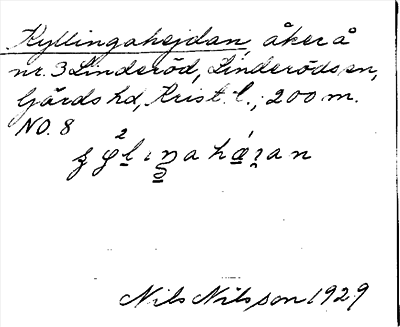 Kyllingahejdan, åker å
nr. 3 Linderöd, Linderöds sn,
Gärds hd, Krist. l.; 200 m.
NO. 8
Nils Nilsson 1929